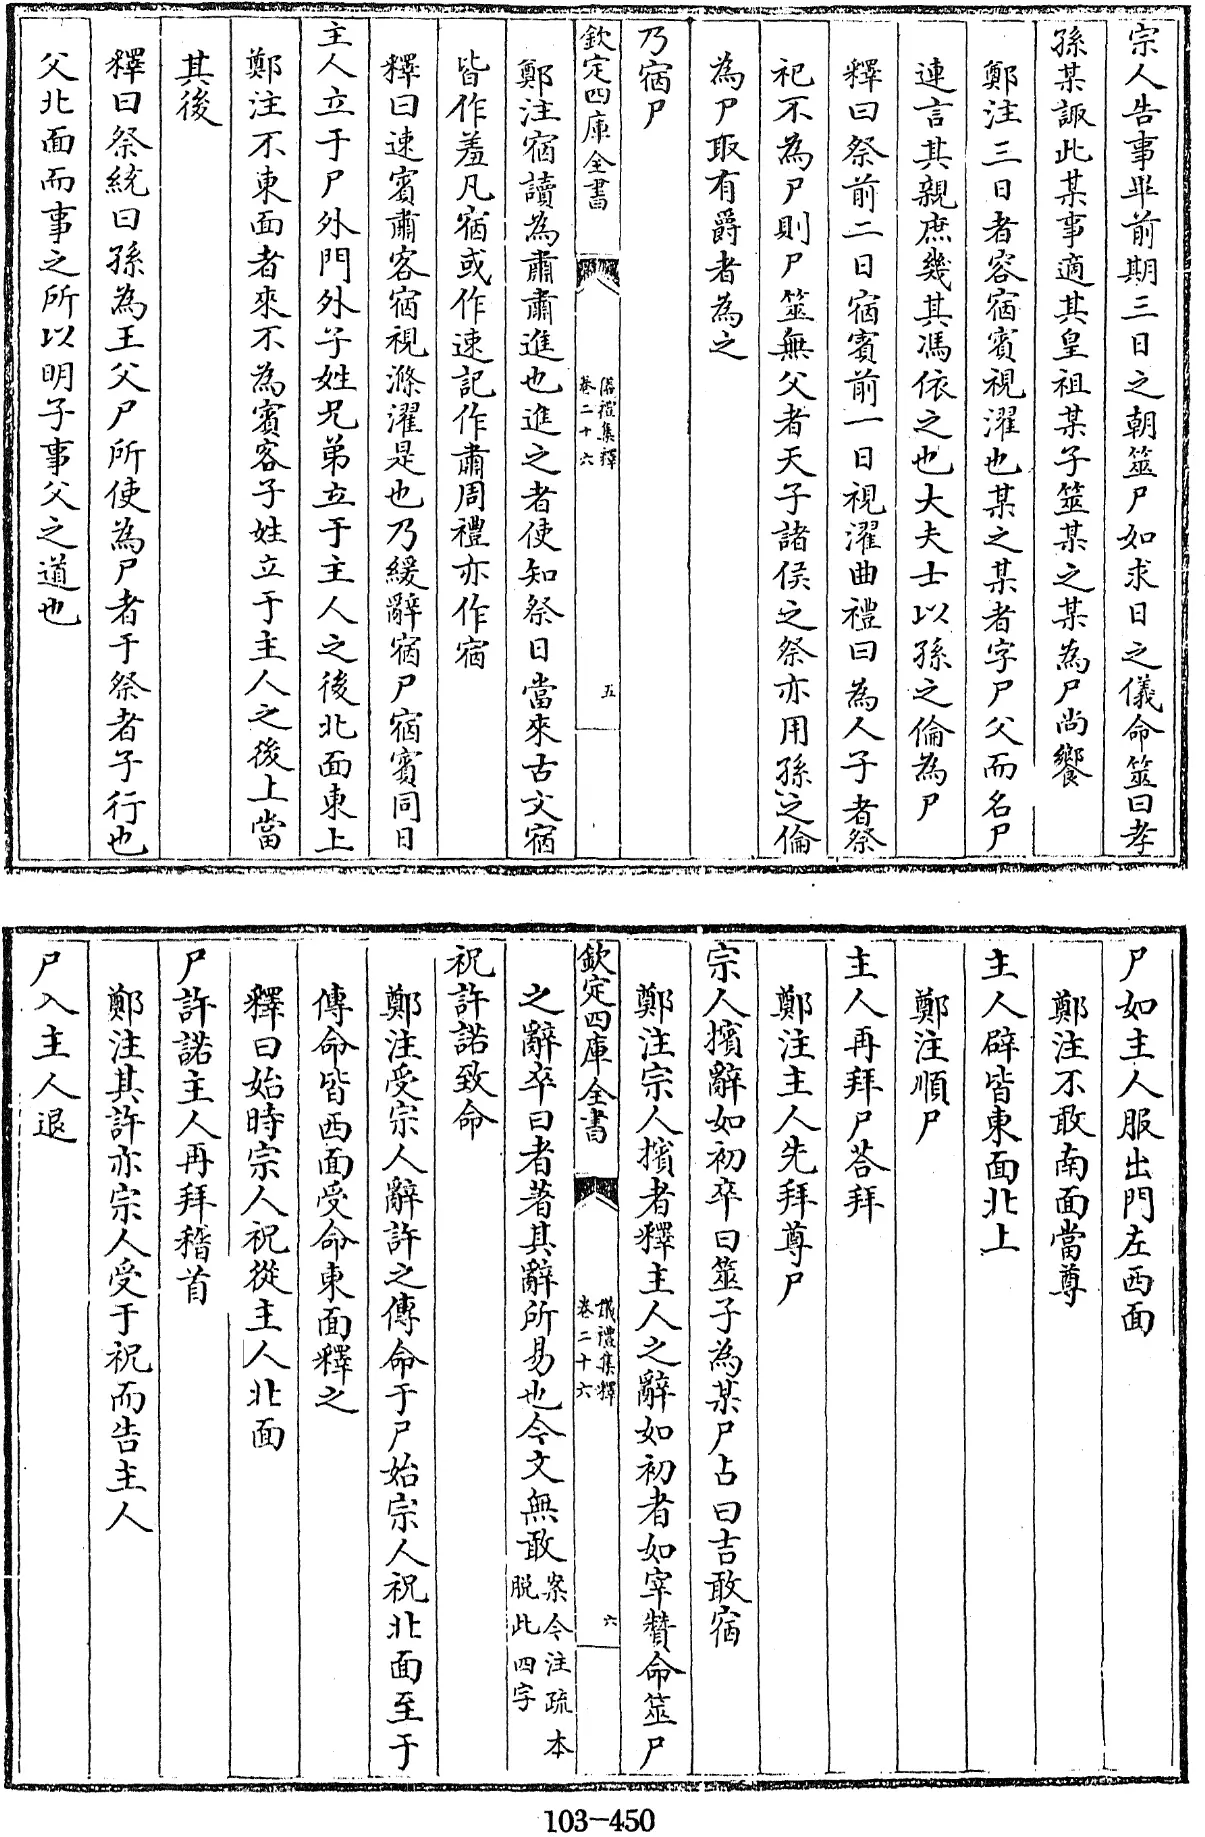 宗人告事畢前期三日之朝筮尸如求日之儀命筮曰孝
孫某諏此某事適其皇祖某子筮某之某為尸尚饗
鄭注三日者容宿賓視濯也某之某者字尸父而名尸
連言其親庶幾其馮依之也大夫士以孫之倫為尸
釋曰祭前二日宿賓前一日視濯曲禮曰為人子者祭
祀不為尸則尸筮無父者天子諸侯之祭亦用孫之倫
為尸取有爵者為之
乃宿尸
欽定四庫全書
儀禮集釋
卷二十六
五
鄭注宿讀為肅肅進也進之者使知祭日當來古文宿
皆作羞凡宿或作速記作肅周禮亦作宿
釋曰速賓肅客宿視滌濯是也乃緩辭宿尸宿賓同日
主人立于尸外門外子姓兄弟立于主人之後北面東上
鄭注不東面者來不為賓客子姓立于主人之後上當
其後
釋曰祭統曰孫為王父尸所使為尸者于祭者子行也
父北面而事之所以明子事父之道也
尸如主人服出門左西面
鄭注不敢南面當尊
主人辟皆東面北上
鄭注順尸
主人再拜尸荅拜
鄭注主人先拜尊尸
宗人擯辭如初卒曰筮子為某尸占曰吉敢宿
鄭注宗人擯者釋主人之辭如初者如宰贊命筮尸
欽定四庫全書
儀禮集釋
卷二十六
六
之辭卒曰者著其辭所易也今文無敢案今注疏本
脱此四字
祝許諾致命
鄭注受宗人辭許之傳命于尸始宗人祝北面至于
傳命皆西面受命東面釋之
釋曰始時宗人祝從主人北面
尸許諾主人再拜稽首
鄭注其許亦宗人受于祝而告主人
尸入主人退
103-450